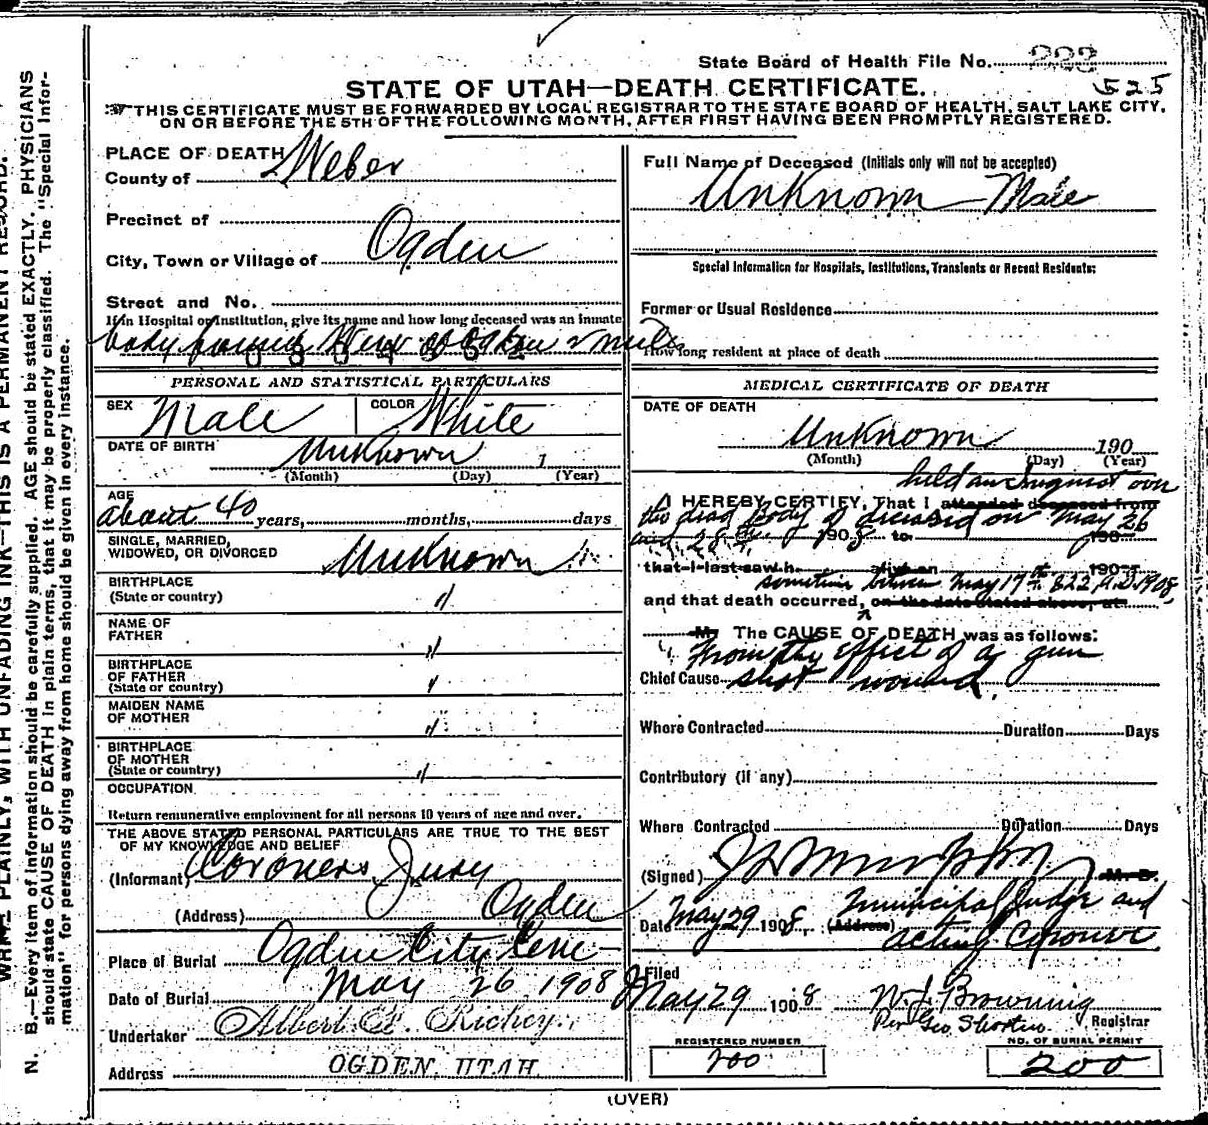 State Board of Health File No. 223
525
STATE OF UTAH—DEATH CERTIFICATE.
THIS CERTIFICATE MUST BE FORWARDED BY LOCAL REGISTRAR TO THE STATE BOARD OF HEALTH, SALT LAKE CITY,
ON OR BEFORE THE 5TH OF THE FOLLOWING MONTH, AFTER FIRST HAVING BEEN PROMPTLY REGISTERED.
PLACE OF DEATH
County of Weber
Precinct of
City, Town or Village of Ogden
Street and No.
If in Hospital or Institution, give its name and how long deceased was an inmate
body found
PERSONAL AND STATISTICAL PARTICULARS
SEX Male COLOR White
DATE OF BIRTH Unknown 1
(Month) (Day) (Year)
AGE
about 40 years, months, days
SINGLE, MARRIED,
WIDOWED, OR DIVORCED Unknown
BIRTHPLACE
(State or country) "
NAME OF
FATHER "
BIRTHPLACE
OF FATHER
(State or country) "
MAIDEN NAME
OF MOTHER "
BIRTHPLACE
OF MOTHER
(State or country) "
OCCUPATION
Return remunerative employment for all persons 10 years of age and over.
THE ABOVE STATED PERSONAL PARTICULARS ARE TRUE TO THE BEST
OF MY KNOWLEDGE AND BELIEF
(Informant) Coroners Jury
(Address) Ogden
Place of Burial Ogden City Cem
Date of Burial May 26 1908
Undertaker Albert E. Richey
Address OGDEN, UTAH
Full Name of Deceased (Initials only will not be accepted)
Unknown Male
Special Information for Hospitals, Institutions, Transients or Recent Residents:
Former or Usual Residence
How long resident at place of death
MEDICAL CERTIFICATE OF DEATH
DATE OF DEATH
Unknown 190
(Month) (Day) (Year)
held an Inquest over
I HEREBY CERTIFY, That I attended deceased from
the dead body of deceased on May 26
and 28 190 8 to 190
that I last saw h alive on 190
sometime between May 17th & 22 A.D. 1908,
and that death occurred, on the date stated above, at
M. The CAUSE OF DEATH was as follows:
From the effect of a gun
Chief Cause shot wound.
Where Contracted Duration Days
Contributory (if any)
Where Contracted Duration Days
(Signed) M. D.
Date May 29 1908, (Address) Municipal Judge and
acting Coroner
Filed
May 29 1908 W. J. Browning
Per Geo. Shorten Registrar
REGISTERED NUMBER
200
NO. OF BURIAL PERMIT
200
(OVER)
WRITE PLAINLY, WITH UNFADING INK—THIS IS A PERMANENT RECORD.
N. B.—Every item of information should be carefully supplied. AGE should be stated EXACTLY. PHYSICIANS
should state CAUSE OF DEATH in plain terms, that it may be properly classified. The "Special Infor-
mation" for persons dying away from home should be given in every instance.